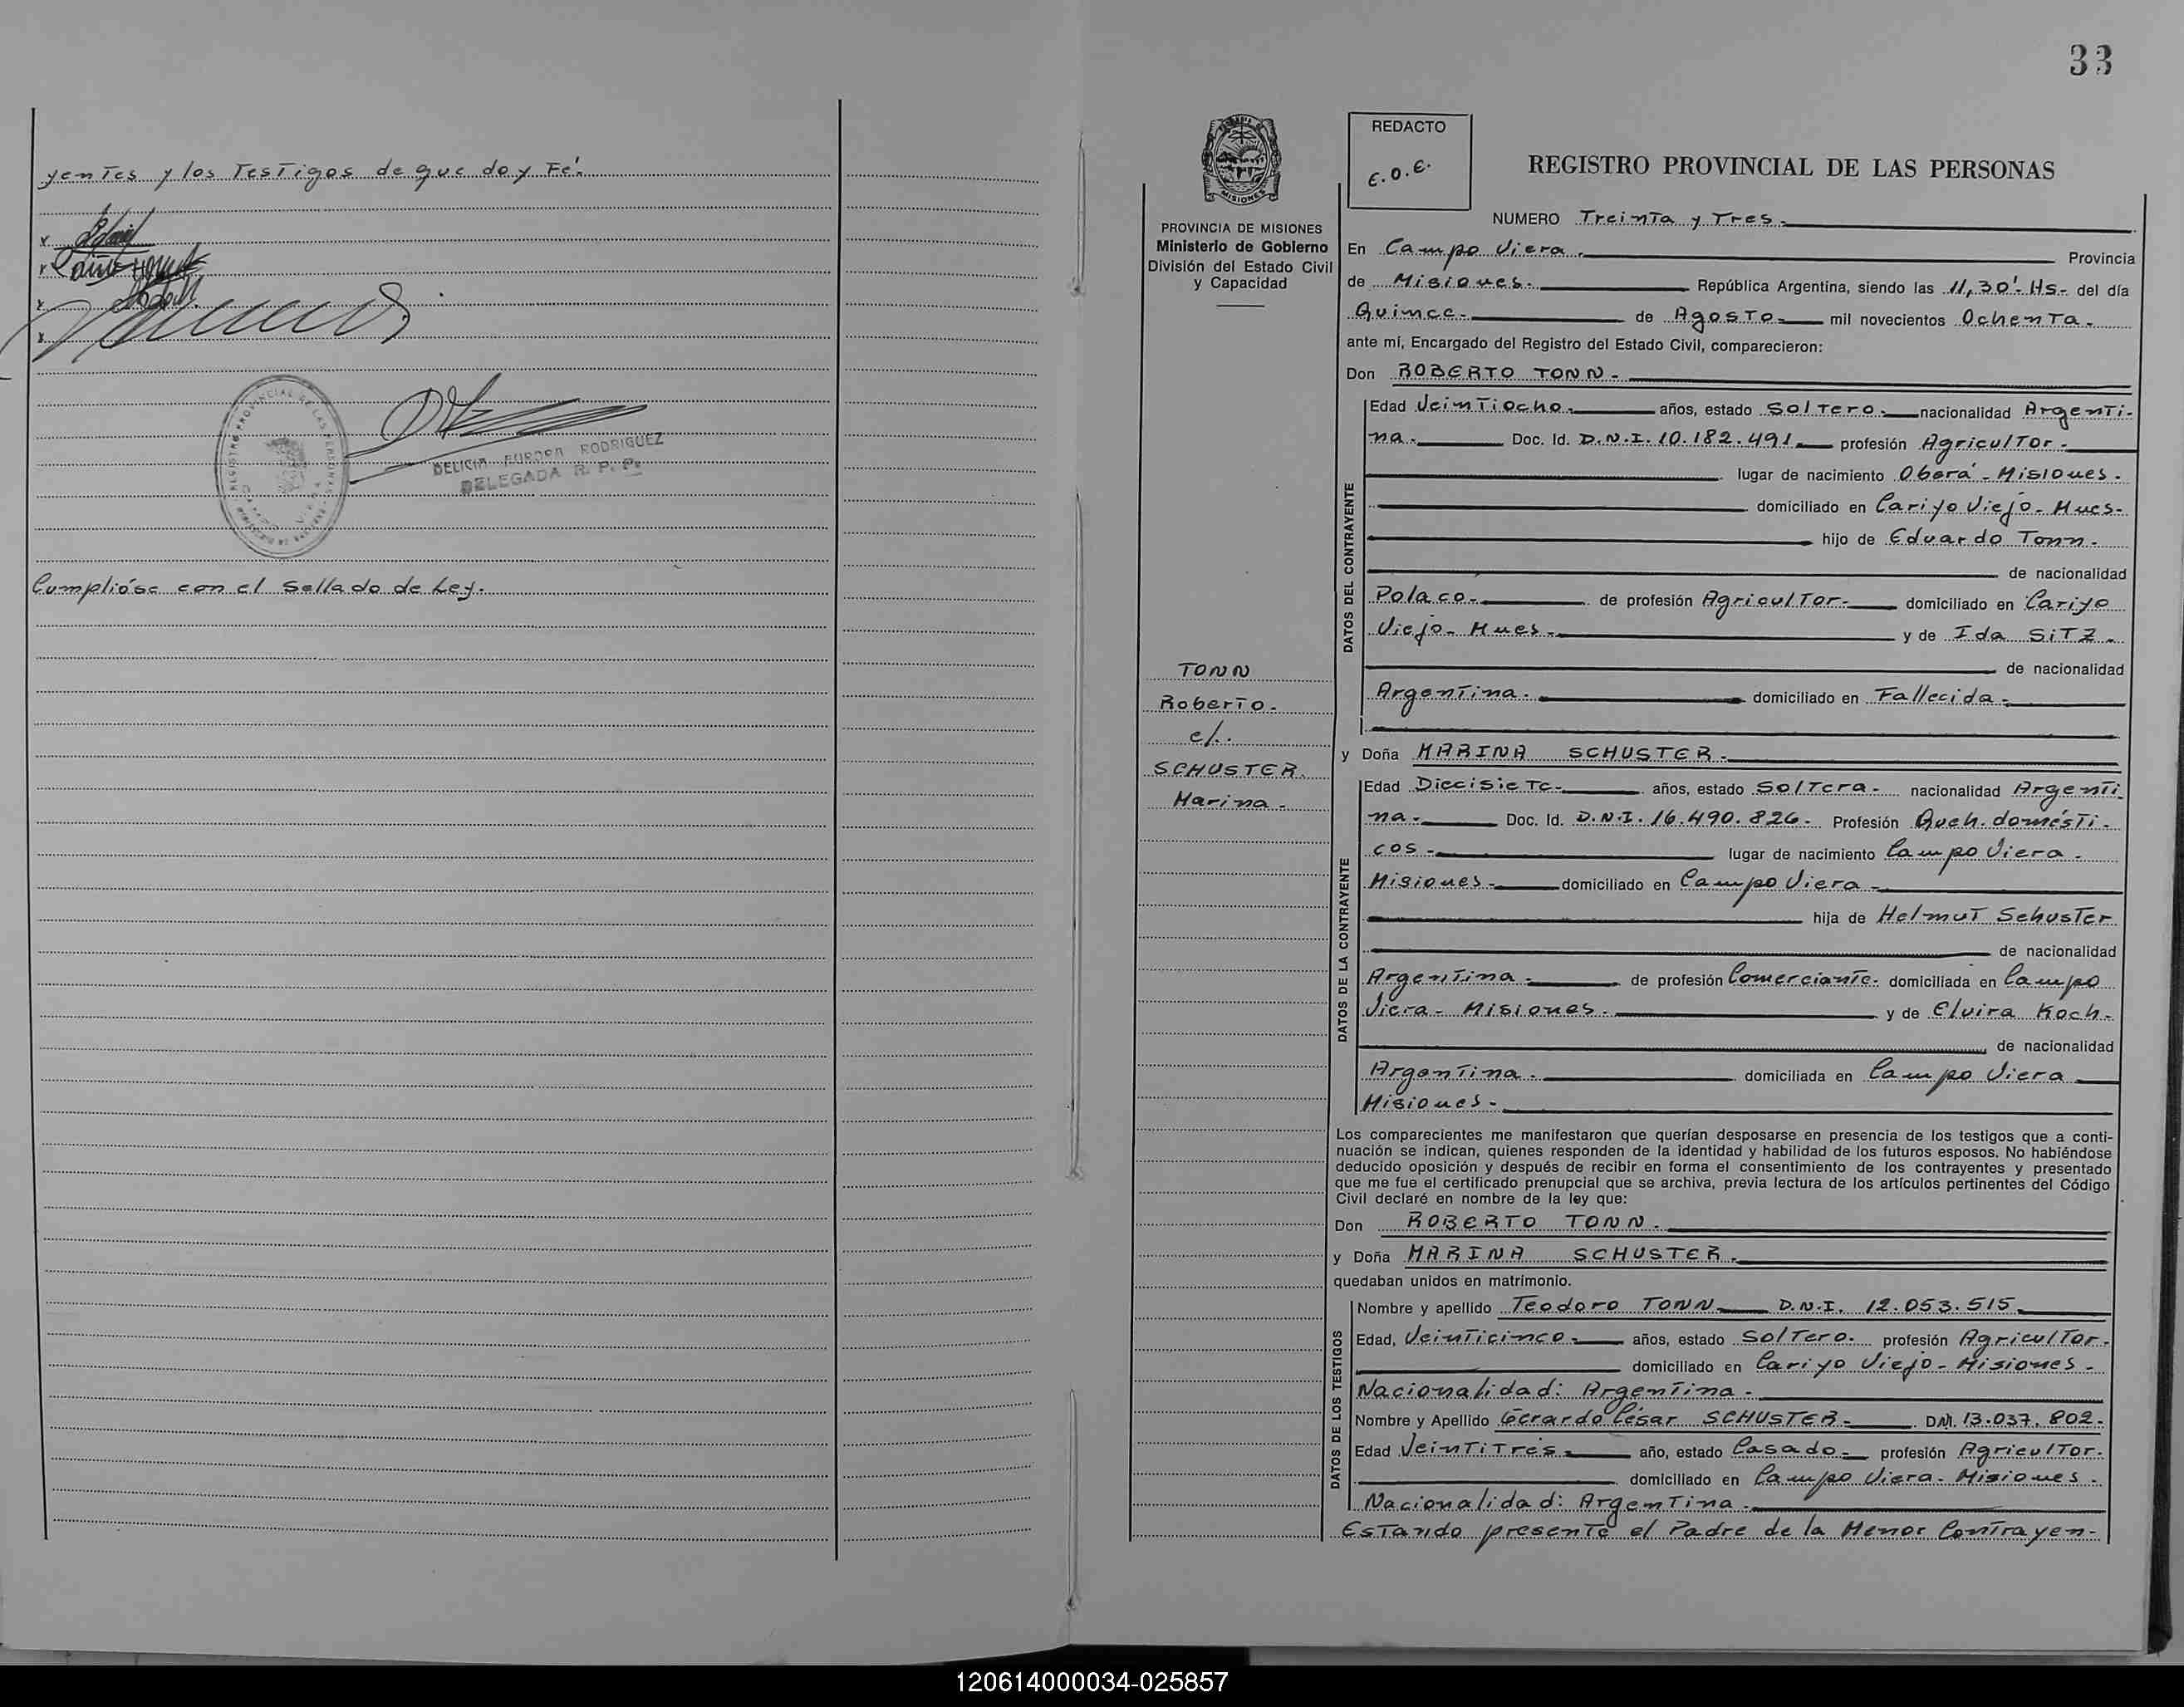 yentes y los Testigos de que doy Fé.
DELICIA AURORA RODRIGUEZ
DELEGADA R. P. P.
Cumplióse con el Sellado de Ley.
33
REDACTO
E.O.E.
REGISTRO PROVINCIAL DE LAS PERSONAS
PROVINCIA DE MISIONES
Ministerio de Gobierno
División del Estado Civil
y Capacidad
TONN
Roberto.
c/.
SCHUSTER.
Marina.
NUMERO Treinta y Tres.
En Campo Viera. Provincia
de Misiones. República Argentina, siendo las 11,30'-Hs- del día
Quince. de Agosto. mil novecientos Ochenta.
ante mí, Encargado del Registro del Estado Civil, comparecieron:
Don ROBERTO TONN.
DATOS DEL CONTRAYENTE
Edad Veintiocho. años, estado Soltero. nacionalidad Argenti-
na. Doc. Id. D.N.I. 10.182.491. profesión Agricultor.
lugar de nacimiento Oberá - Misiones.
domiciliado en Cariyo Viejo - Mnes-
hijo de Eduardo Tonn.
de nacionalidad
Polaco. de profesión Agricultor. domiciliado en Cariyo
Viejo - Mnes. y de Ida SITZ.
de nacionalidad
Argentina. domiciliado en Fallecida.
y Doña MARINA SCHUSTER.
DATOS DE LA CONTRAYENTE
Edad Diecisiete. años, estado Soltera. nacionalidad Argenti-
na. Doc. Id. D.N.I. 16.490.826. Profesión Queh. domésti-
cos. lugar de nacimiento Campo Viera.
Misiones. domiciliado en Campo Viera.
hija de Helmut Schuster
de nacionalidad
Argentina. de profesión Comerciante. domiciliada en Campo
Viera - Misiones. y de Elvira Koch.
de nacionalidad
Argentina. domiciliada en Campo Viera
Misiones.
Los comparecientes me manifestaron que querían desposarse en presencia de los testigos que a conti-
nuación se indican, quienes responden de la identidad y habilidad de los futuros esposos. No habiéndose
deducido oposición y después de recibir en forma el consentimiento de los contrayentes y presentado
que me fue el certificado prenupcial que se archiva, previa lectura de los artículos pertinentes del Código
Civil declaré en nombre de la ley que:
Don ROBERTO TONN.
y Doña MARINA SCHUSTER.
quedaban unidos en matrimonio.
DATOS DE LOS TESTIGOS
Nombre y apellido Teodoro TONN D.N.I. 12.053.515.
Edad, Veinticinco. años, estado Soltero. profesión Agricultor.
domiciliado en Cariyo Viejo - Misiones.
Nacionalidad: Argentina.
Nombre y Apellido Gerardo César SCHUSTER. DNI. 13.037.802.
Edad Veintitres. año, estado Casado. profesión Agricultor.
domiciliado en Campo Viera - Misiones.
Nacionalidad: Argentina.
Estando presente el Padre de la Menor Contrayen-
120614000034-025857